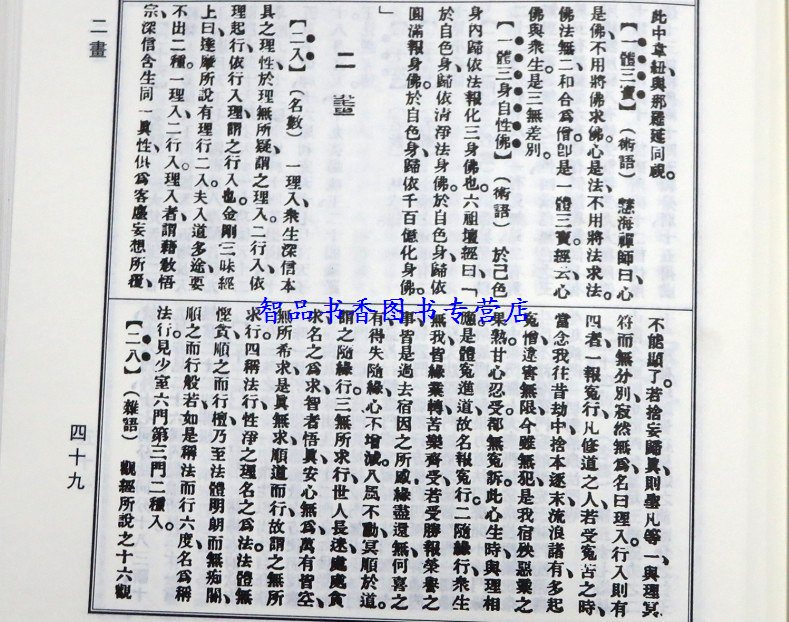 此中章紐與那羅延同視。
【一體三寶】（術語）慧海禪師曰心
是佛、不用將佛求佛。心是法、不用將法求法。
佛法無二、和合為僧、卽是一體三寶。經云、心
佛與衆生、是三無差別。
【一體三身自性佛】（術語）於己色
身內歸依法報化三身佛也。六祖壇經曰「
於自色身、歸依淸淨法身佛。於自色身、歸依
圓滿報身佛。於自色身、歸依千百億化身佛。
」
二畫
【二入】（名數）一理入、衆生深信本
具之理性於理無所疑謂之理入。二行入、依
理起行、依行入理謂之行入也。金剛三昧經
上曰、達摩所說有理行二入。夫入道多途、要
不出二種。一理入、二行入。理入者、謂藉敎悟
宗、深信含生同一眞性、俱爲客塵妄想所覆、
不能顯了。若捨妄歸眞、則聖凡等一、與理冥
符而無分別、寂然無爲、名曰理入。行入則有
四者、一報冤行、凡修道之人、若受冤苦之時、
當念我往昔劫中、捨本逐末、流浪諸有、多起
冤憎違害無限。今雖無犯、是我宿殃惡業之
果熟、甘心忍受、都無冤訴。此心生時、與理相
應、是體冤進道、故名報冤行。二隨緣行、衆生
無我、皆緣業轉、苦樂齊受、若受勝報榮譽之
事、皆是過去宿因之所感、緣盡還無、何喜之
有。得失隨緣、心不增減、八風不動、冥順於道。
謂之隨緣行。三無所求行、世人長迷、處處貪
求、名之爲求、智者悟眞、安心無爲、萬有皆空、
無所希求、是眞無求順道而行、故謂之無所
求行。四稱法行、性淨之理、名之爲法、法體無
慳貪、順之而行檀、乃至法體明朗而無痴闇、
順之而行般若、如是稱法而行六度、名爲稱
法行。見少室六門第三門二種入。
【二八】（雜語）觀經所說之十六觀
二畫
四十九
智品书香图书专营店